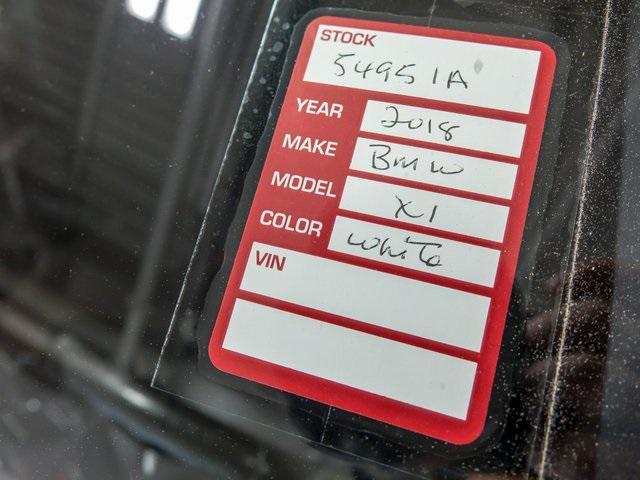 STOCK
54951A
YEAR 2018
MAKE BMW
MODEL X1
COLOR White
VIN